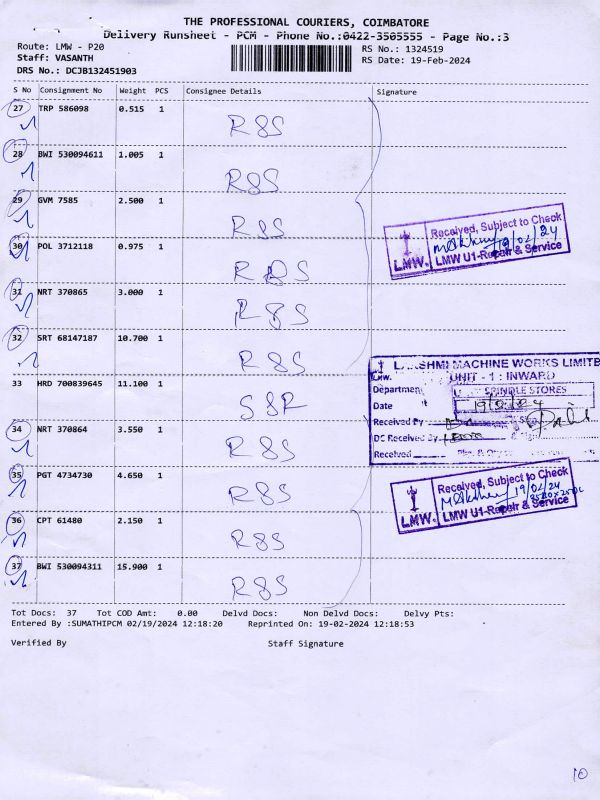 THE PROFESSIONAL COURIERS, COIMBATORE
Delivery Runsheet - PCM - Phone No.:0422-3505555 - Page No.:3
Route: LMW - P20
RS No.: 1324519
Staff: VASANTH
RS Date: 19-Feb-2024
DRS No.: DCJB132451903
S No Consignment No Weight PCS Consignee Details Signature
27 TRP 586098 0.515 1
R&S
28 BWI 530094611 1.005 1
R&S
29 GVM 7585 2.500 1
R&S
30 POL 3712118 0.975 1
R&S
31 NRT 370865 3.000 1
R&S
32 SRT 68147187 10.700 1
R&S
33 HRD 700839645 11.100 1
SSR
34 NRT 370864 3.550 1
R&S
35 PGT 4734730 4.650 1
R&S
36 CPT 61480 2.150 1
R&S
37 BWI 530094311 15.900 1
R&S
Received, Subject to Check
19/02/24
LMW. LMW U1-Repair & Service
LAKSHMI MACHINE WORKS LIMITE
UNIT - 1 : INWARD
Department SPINDLE STORES
Date 19/2/24
Received By
DC Received By
Received
Received, Subject to Check
19/02/24
LMW. LMW U1-Repair & Service
Tot Docs: 37 Tot COD Amt: 0.00 Delvd Docs: Non Delvd Docs: Delvy Pts:
Entered By :SUMATHIPCM 02/19/2024 12:18:20 Reprinted On: 19-02-2024 12:18:53
Verified By Staff Signature
10